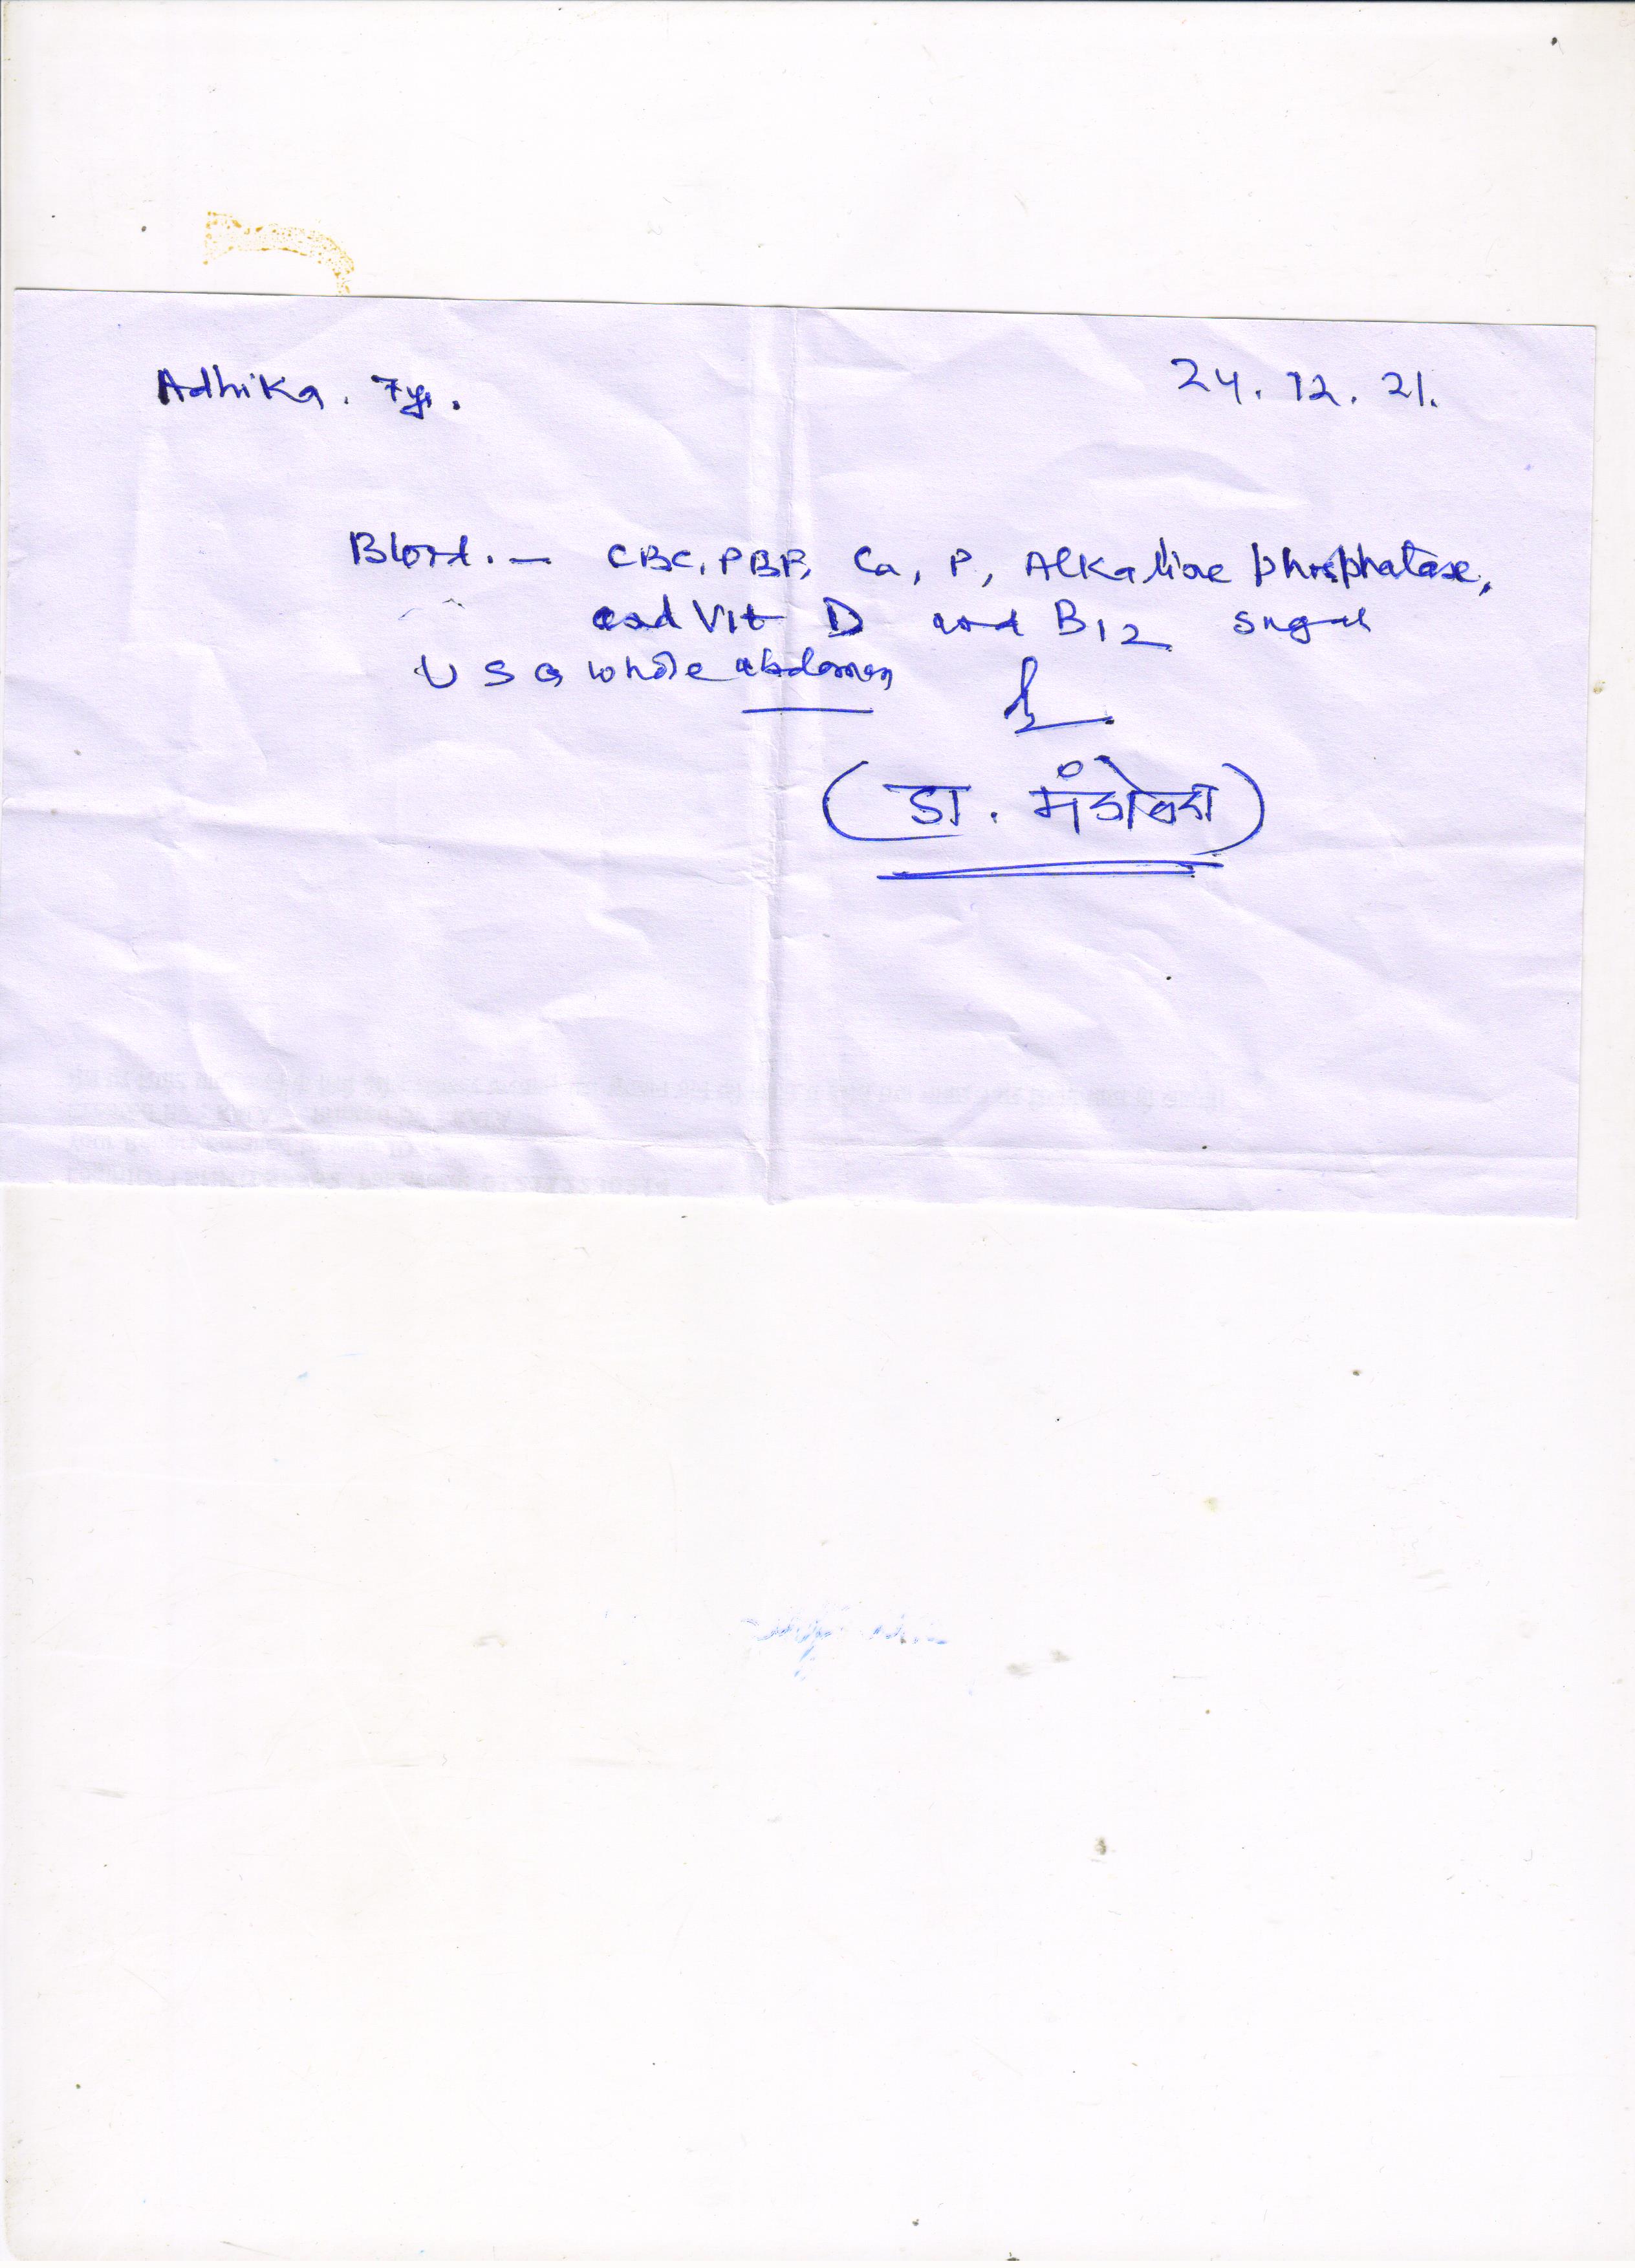 Adhika. 7y. 24.12.21.
Blood. - CBC, PBF, Ca, P, Alkaline phosphatase,
and Vit D and B12 sugar
USG whole abdomen
(डा.